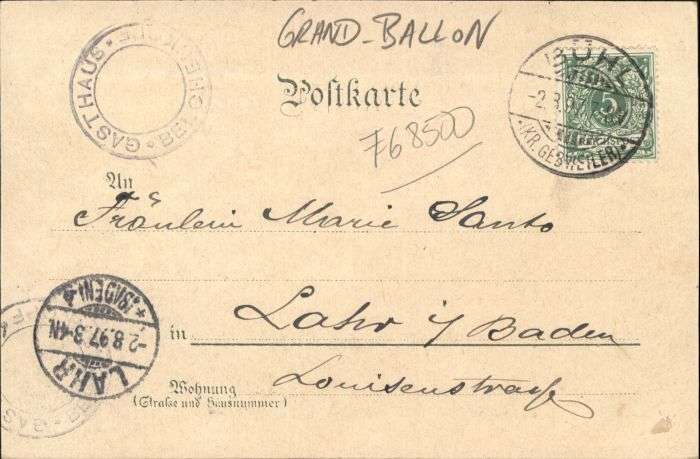 GRAND-BALLON
Postkarte
768500
BÜHL
-2.8.97
(KR. GEBWEILER)
5
An
Fräulein Marie Santo
in Lahr i/Baden
Wohnung
(Straße und Hausnummer)
Louisenstraße
LAHR
-2.8.97.3-4N.
*(BADEN)
GASTHAUS